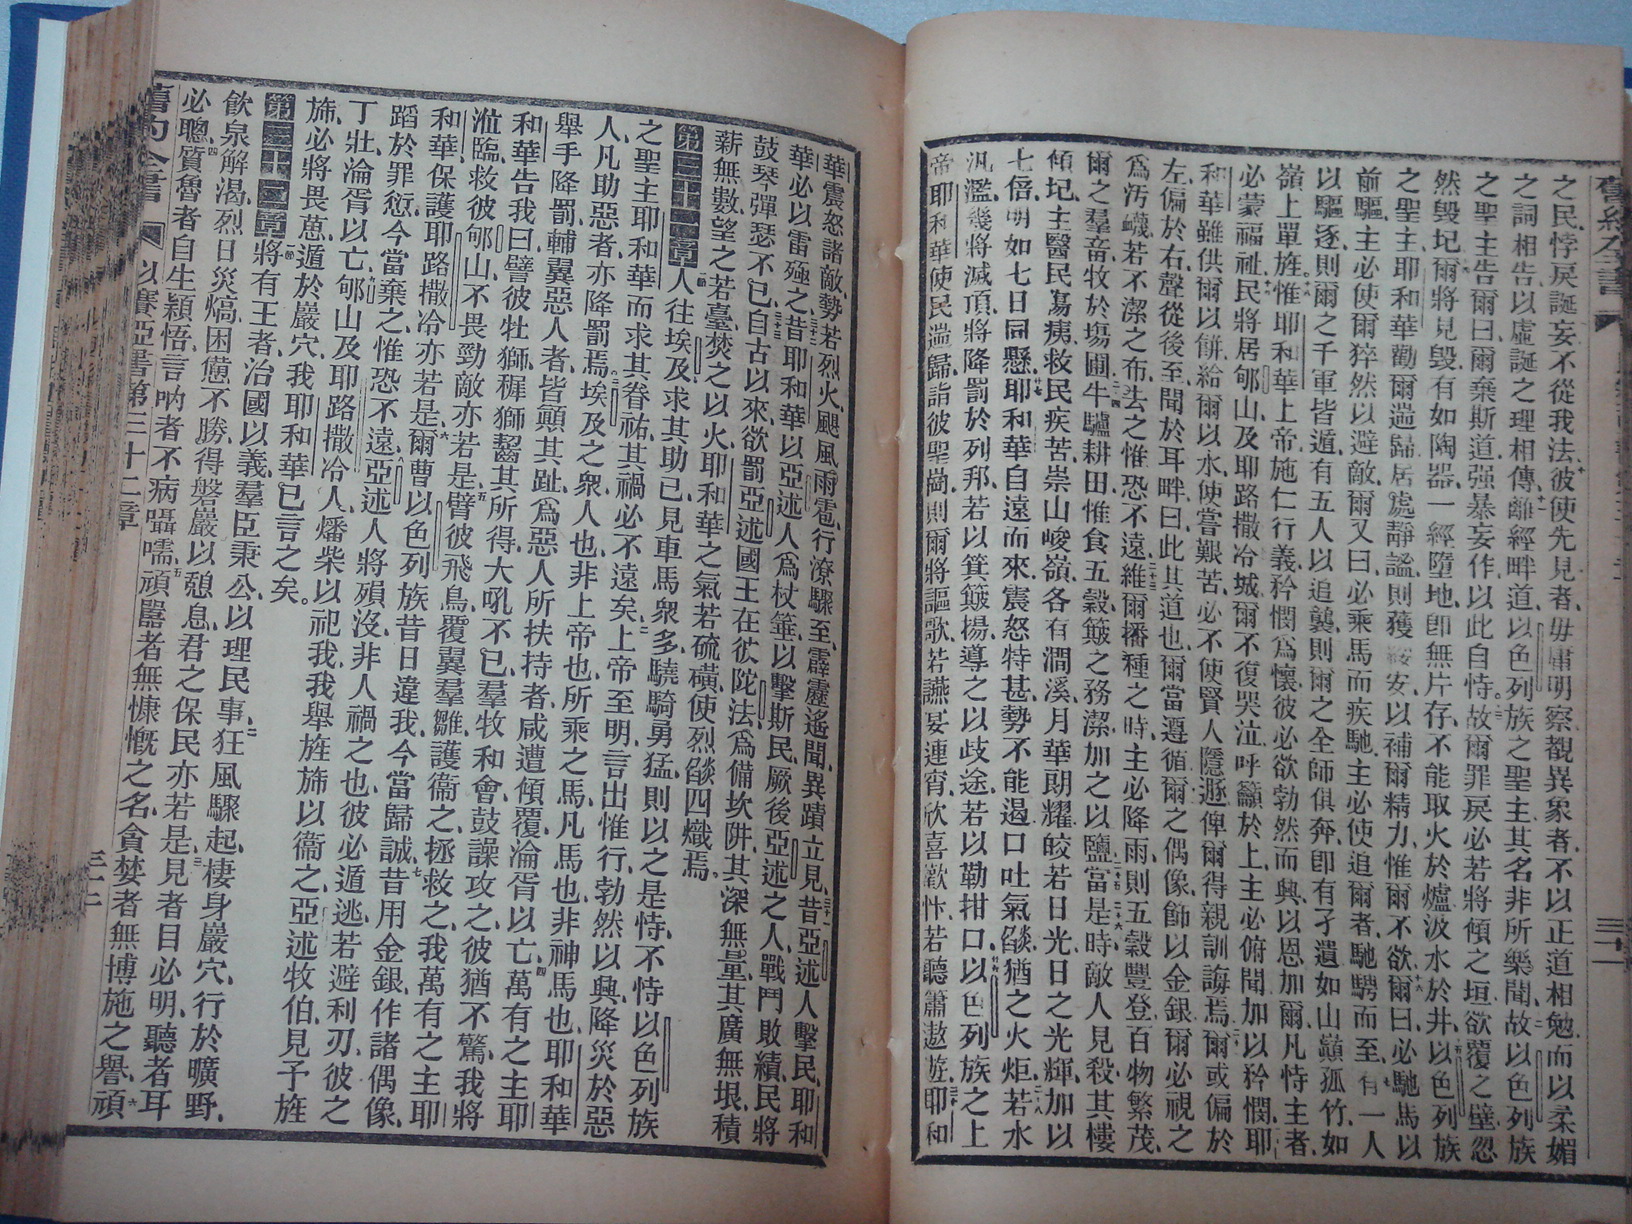 之民、悖戾誕妄、不從我法、彼使先見者、毋庸明察、觀異象者、不以正道相勉、而以柔媚
之詞相告、以虛誕之理相傳、離經畔道、以色列族之聖主、其名非所樂聞、故以色列族
之聖主告爾曰、爾棄斯道、强暴妄作、以此自恃、故爾罪戾、必若將傾之垣、欲覆之壁、忽
然毀圮、爾將見毀、有如陶器、一經墮地、卽無片存、不能取火於爐、汲水於井、以色列族
之聖主、耶和華勸爾遄歸、居處靜謐、則獲綏安、以補爾精力、惟爾不欲、爾曰、必馳馬以
前驅、主必使爾猝然以避敵、爾又曰、必乘馬而疾馳、主必使追爾者、馳騁而至、有一人
以驅逐、則爾之千軍皆遁、有五人以追襲、則爾之全師俱奔、卽有孑遺、如山巔孤竹、如
嶺上單旌、惟耶和華上帝、施仁行義、矜憫爲懷、彼必欲勃然而興、以恩加爾、凡恃主者、
必蒙福祉、民將居郇山、及耶路撒冷城、爾不復哭泣、呼籲於上、主必俯聞、加以矜憫、耶
和華雖供爾以餅、給爾以水、使嘗艱苦、必不使賢人隱遯、俾爾得親訓誨焉、爾或偏於
左、偏於右、聲從後至、聞於耳畔、曰、此其道也、爾當遵循、爾之偶像、飾以金銀、爾必視之
爲汚衊、若不潔之布、去之惟恐不遠、維爾播種之時、主必降雨、則五穀豐登、百物繁茂、
爾之羣畜、牧於塲圃、牛驢耕田、惟食五穀、簸之務潔、加之以鹽、當是時、敵人見殺、其樓
傾圮、主醫民瘍痍、救民疾苦、崇山峻嶺、各有澗溪、月華朗耀、皎若日光、日之光輝、加以
七倍、明如七日同懸、耶和華自遠而來、震怒特甚、勢不能遏、口吐氣燄、猶之火炬、若水
汎濫、幾將滅頂、將降罰於列邦、若以箕簸揚、導之以歧途、若以勒拑口、以色列族之上
帝耶和華、使民遄歸、詣彼聖崗、則爾將謳歌、若讌宴連宵、欣喜歡忭、若聽簫遨遊、耶和
華震怒諸敵、勢若烈火、颶風雨雹、行潦驟至、霹靂遙聞、異蹟立見、昔亞述人擊民、耶和
華必以雷殛之、昔耶和華以亞述人爲杖箠、以擊斯民、厥後亞述之人、戰鬥敗績、民將
鼓琴彈瑟不已、自古以來、欲罰亞述國王、在彼陀法、爲備坎阱、其深無量、其廣無垠、積
薪無數、望之若臺、焚之以火、耶和華之氣、若硫磺、使烈燄四熾焉。
第三十一章人往埃及求其助、已見車馬衆多、驍騎勇猛、則以之是恃、不恃以色列族
之聖主耶和華、而求其眷祐、其禍必不遠矣、上帝至明、言出惟行、勃然以興、降災於惡
人、凡助惡者、亦降罰焉、埃及之衆、人也、非上帝也、所乘之馬、凡馬也、非神馬也、耶和華
舉手降罰、輔翼惡人者、皆顚其趾、爲惡人所扶持者、咸遭傾覆、淪胥以亡、萬有之主耶
和華告我曰、譬彼牡獅、穉獅齧其所得、大吼不已、羣牧和會、鼓譟攻之、彼猶不驚、我將
涖臨、救彼郇山、不畏勁敵、亦若是、譬彼飛鳥、覆翼羣雛、護衞之、拯救之、我萬有之主耶
和華保護耶路撒冷、亦若是、爾曹以色列族、昔日違我、今當歸誠、昔用金銀、作諸偶像、
蹈於罪愆、今當棄之、惟恐不遠、亞述人將殞沒、非人禍之也、彼必遁逃、若避利刃、彼之
丁壯、淪胥以亡、郇山及耶路撒冷人、燔柴以祀我、我舉旌旆以衞之、亞述牧伯、見予旌
旆、必將畏葸、遁於巖穴、我耶和華已言之矣。
第三十二章將有王者、治國以義、羣臣秉公、以理民事、狂風驟起、棲身巖穴、行於曠野、
飮泉解渴、烈日災熇、困憊不勝、得磐巖以憩息、君之保民亦若是、見者目必明、聽者耳
必聰、質魯者自生穎悟、言吶者不病囁嚅、頑嚚者無慷慨之名、貪婪者無博施之譽、頑
舊約全書 以賽亞書第三十二章 三十二